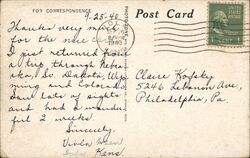 FOR CORRESPONDENCE
Post Card
9-25-40
Thanks very much
for the nice card.
I just returned from
a trip through Nebras-
ka, So. Dakota, Wyo-
ming and Colorado.
Saw lots of sights
and had a wonder-
ful 2 weeks.
Sincerely,
Viola
Kans.
Claire Kofsky
5426 Lebanon Ave,
Philadelphia, Pa.